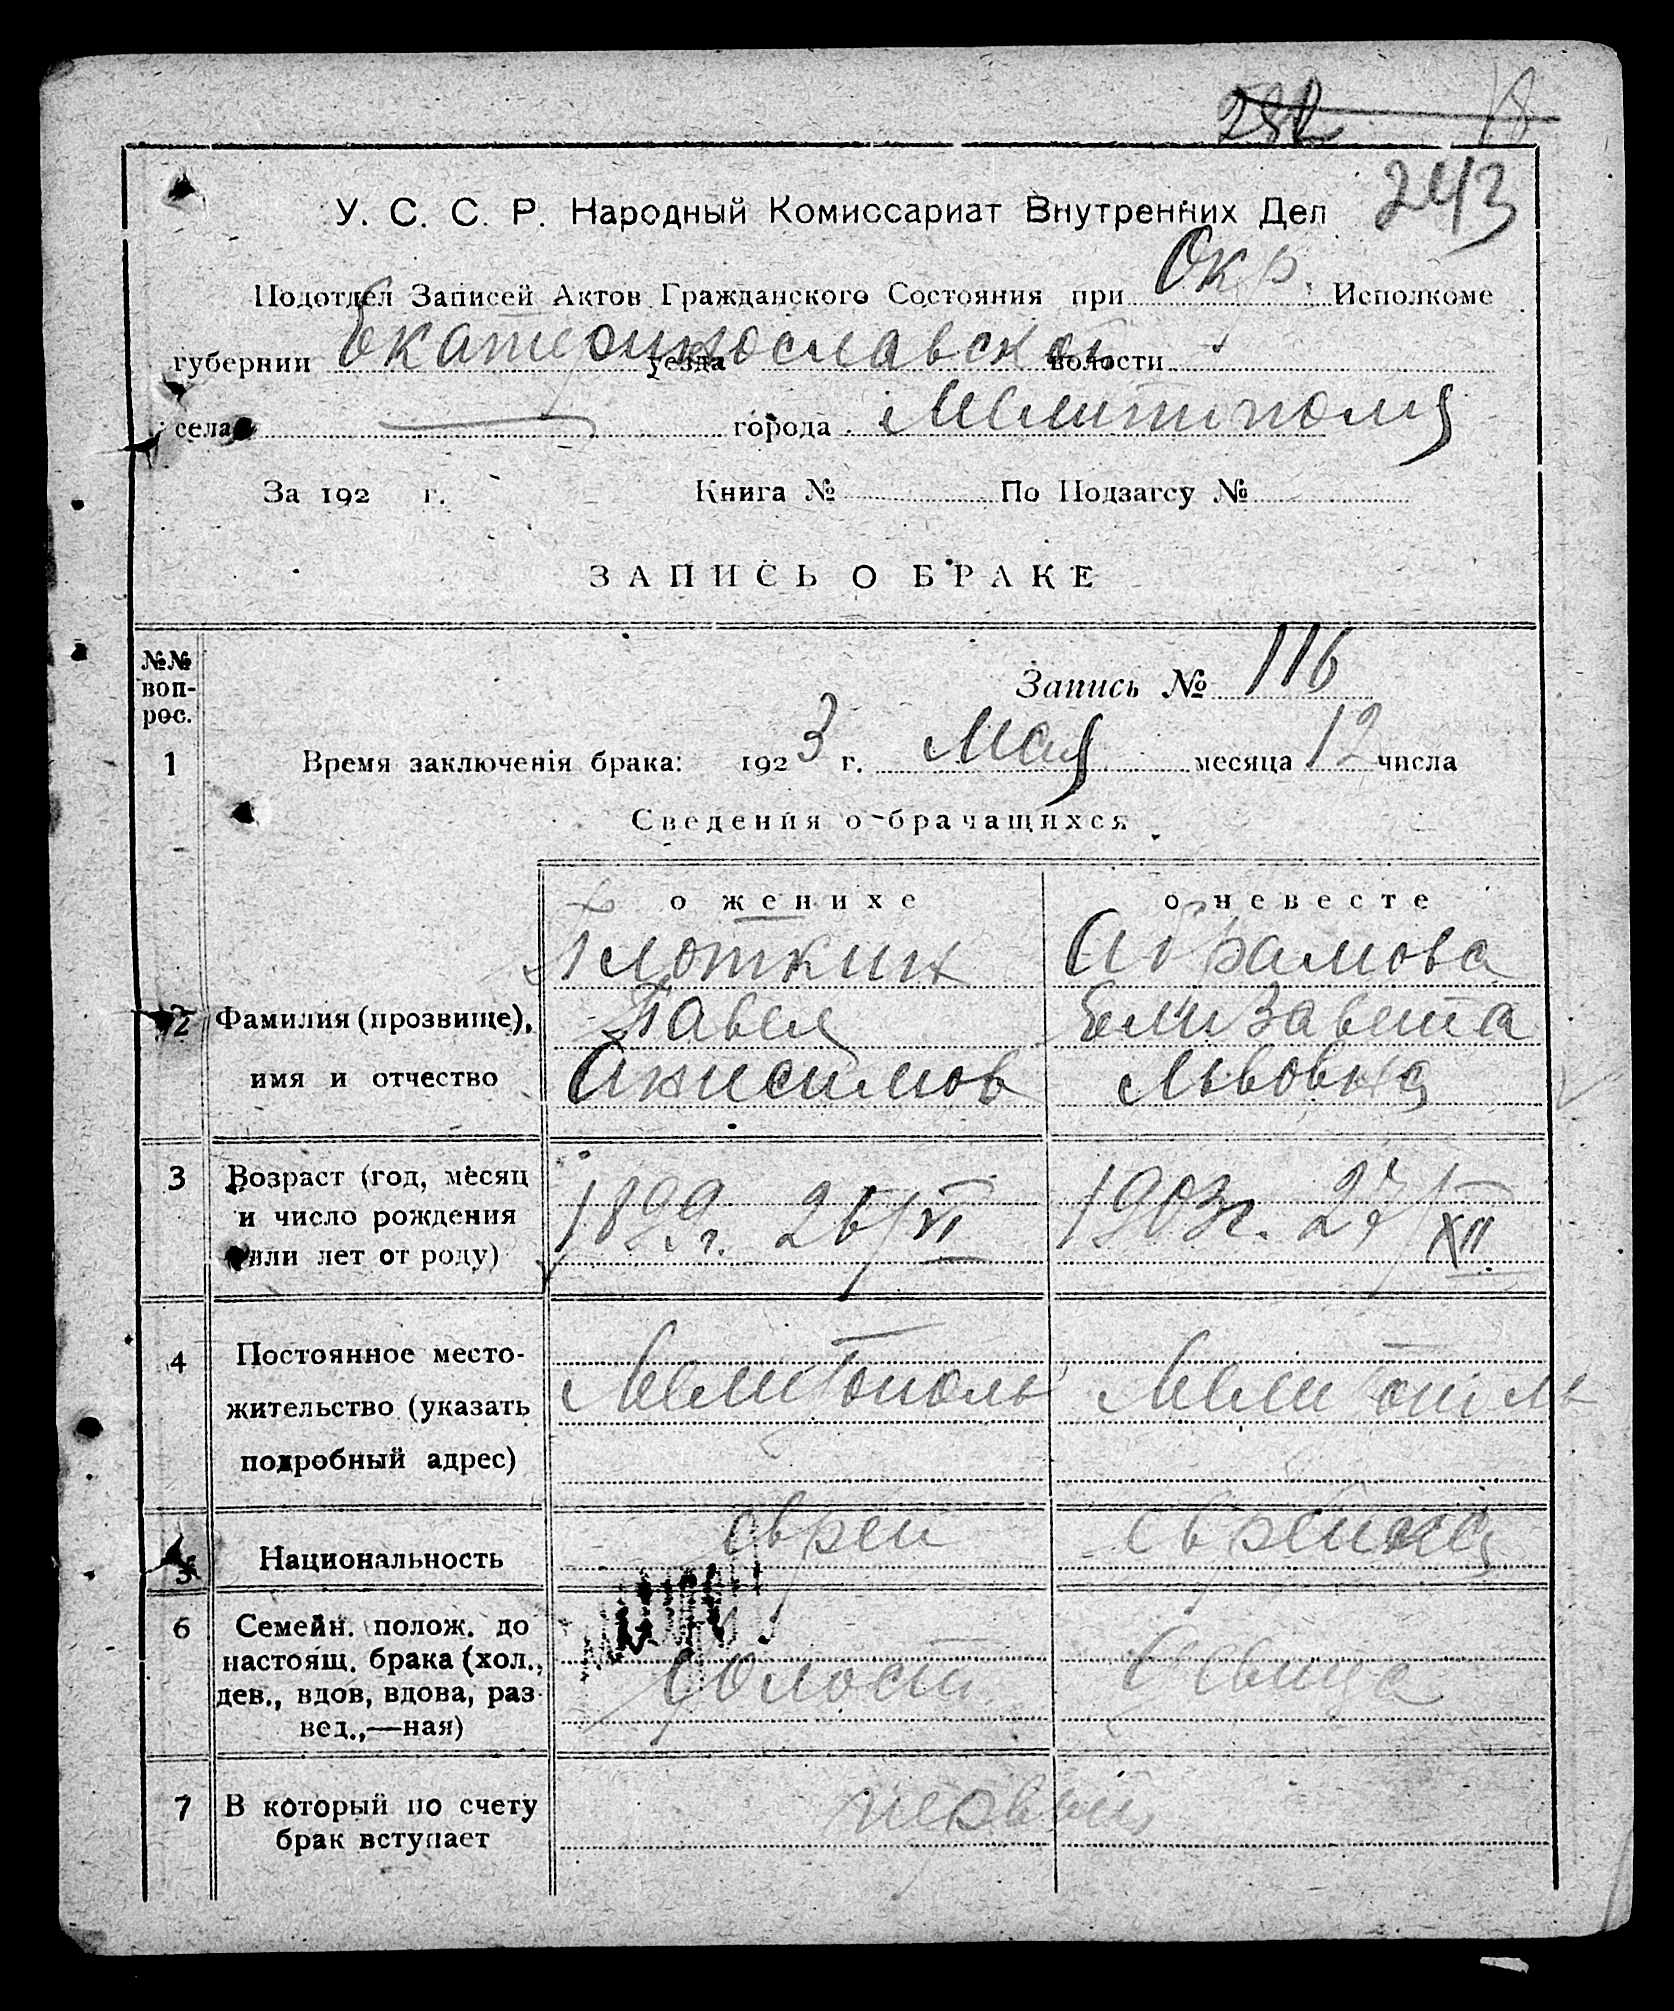 232 18
243
У. С. С. Р. Народный Комиссариат Внутренних Дел
Подотдел Записей Актов Гражданского Состояния при Окр. Исполкоме
губернии Екатеринославской уезда волости
села города Мелитополя
За 192 г. Книга № По Подзагсу №
ЗАПИСЬ О БРАКЕ
№№ воп-рос.
Запись № 116
1 Время заключенія брака: 1923 г. Мая месяца 12 числа
Сведения о брачащихся
о женихе о невесте
Плоткин Абрамова
2 Фамилия (прозвище), Павел Елизавета
имя и отчество Анисимов Львовна
3 Возраст (год, месяц
и число рождения 1899г. 26/VI 1903г. 27/XII
или лет от роду)
4 Постоянное место-
жительство (указать Мелитополь Мелитополь
подробный адрес)
5 Национальность еврей еврейка
6 Семейн. полож. до
настоящ. брака (хол.,
дев., вдов, вдова, раз- холост девица
вед.,—ная)
7 В который по счету первый
брак вступает